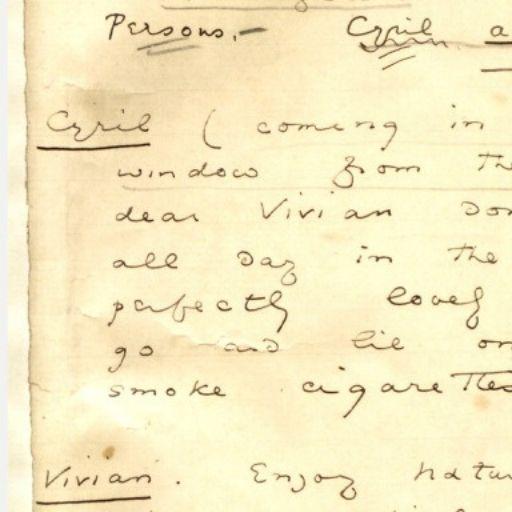 Persons.- Cyril a
Cyril ( coming in
window from the
dear Vivian don
all day in the
perfectly lovely
go and lie on
smoke cigarettes
Vivian. Enjoy natu